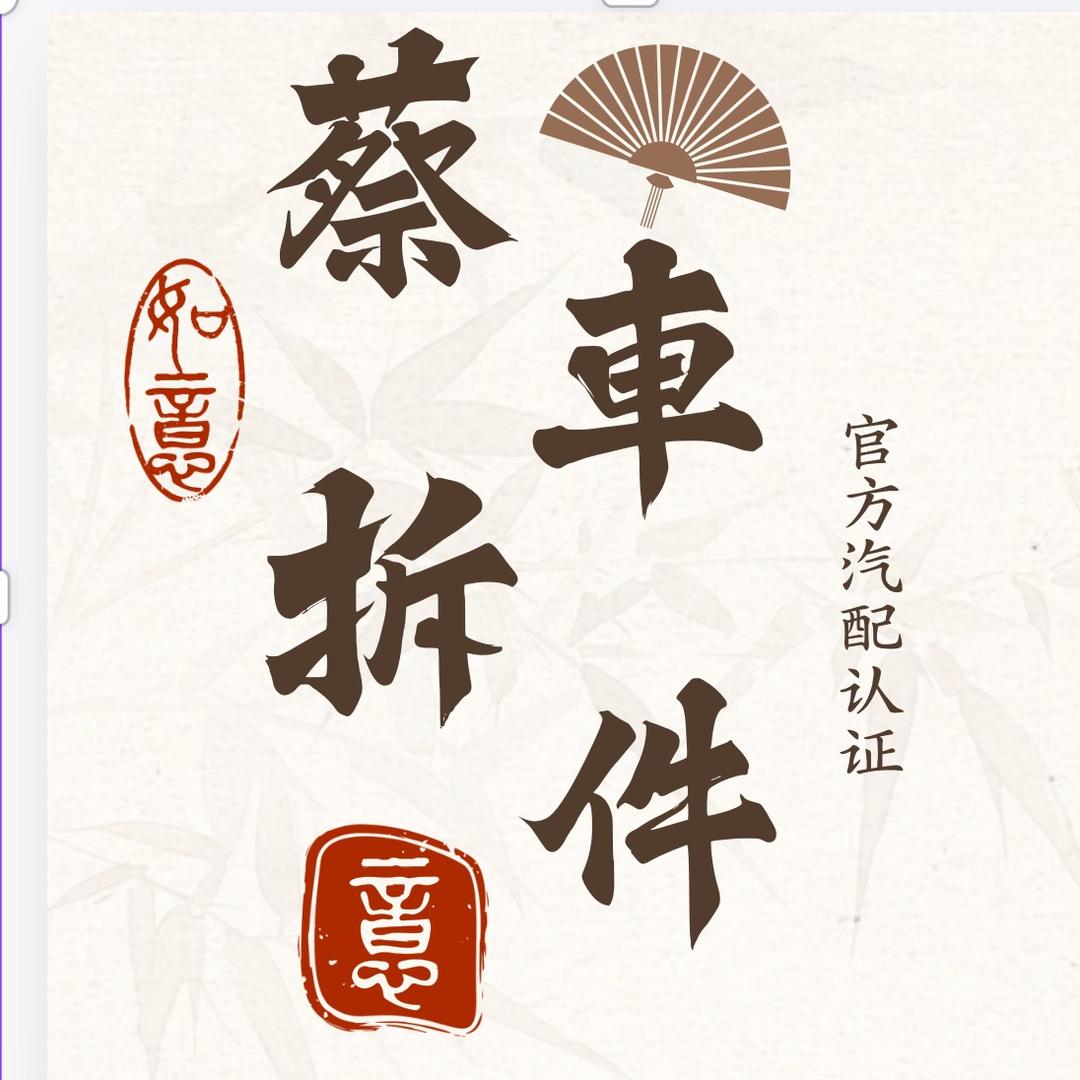 蔡車拆件
官方汽配认证
如意
意